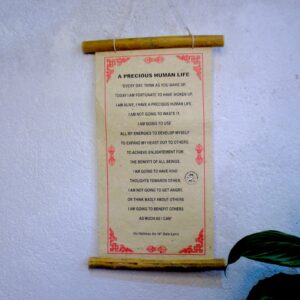 A PRECIOUS HUMAN LIFE
'EVERY DAY, THINK AS YOU WAKE UP,
TODAY I AM FORTUNATE TO HAVE WOKEN UP,
I AM ALIVE, I HAVE A PRECIOUS HUMAN LIFE,
I AM NOT GOING TO WASTE IT,
I AM GOING TO USE
ALL MY ENERGIES TO DEVELOP MYSELF
TO EXPAND MY HEART OUT TO OTHERS,
TO ACHIEVE ENLIGHTENMENT FOR
THE BENEFIT OF ALL BEINGS,
I AM GOING TO HAVE KIND
THOUGHTS TOWARDS OTHER,
I AM NOT GOING TO GET ANGRY,
OR THINK BADLY ABOUT OTHERS
I AM GOING TO BENEFIT OTHERS
AS MUCH AS I CAN'
His Holiness the 14th Dalai Lama